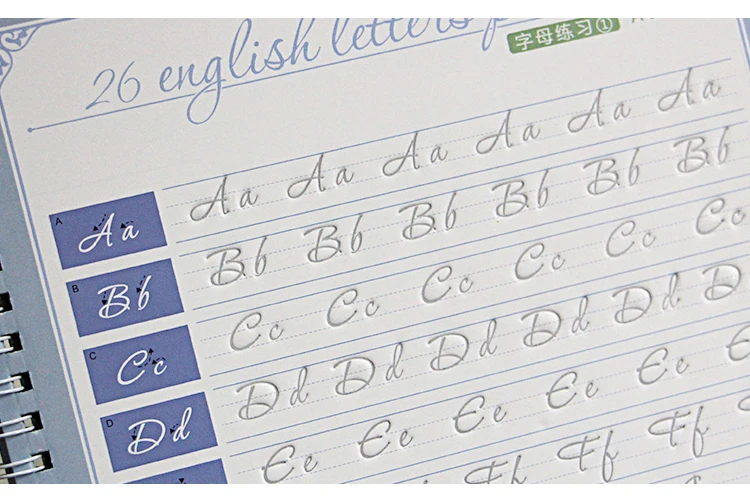 26 english letters
字母练习①
A Aa Aa Aa Aa Aa Aa Aa
B Bb Bb Bb Bb Bb Bb Bb
C Cc Cc Cc Cc Cc Cc Cc
D Dd Dd Dd Dd Dd Dd D
Ee Ee Ee Ee Ee
Ff Ff Ff